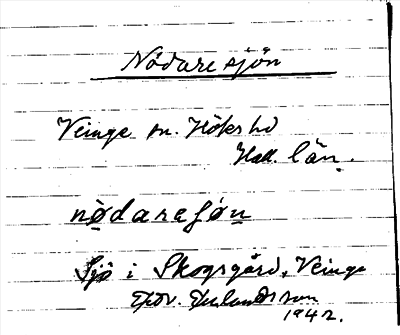 Nödaresjön
Veinge sn. Höks hd
Hall. län.
nödaresjön
Sjö i Skogsgård, Veinge
1942.